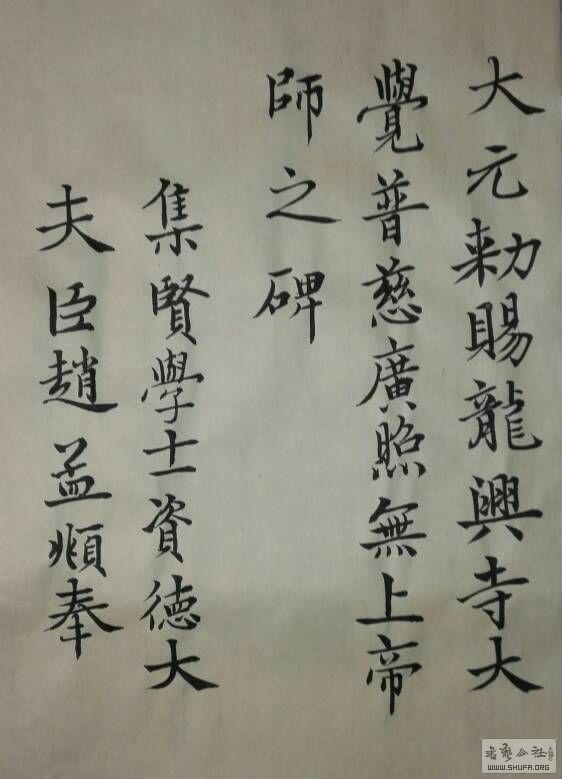 大元勅賜龍興寺大
覺普慈廣照無上帝
師之碑
集賢學士資徳大
夫臣趙孟頫奉
書藝公社
WWW.SHUFA.ORG